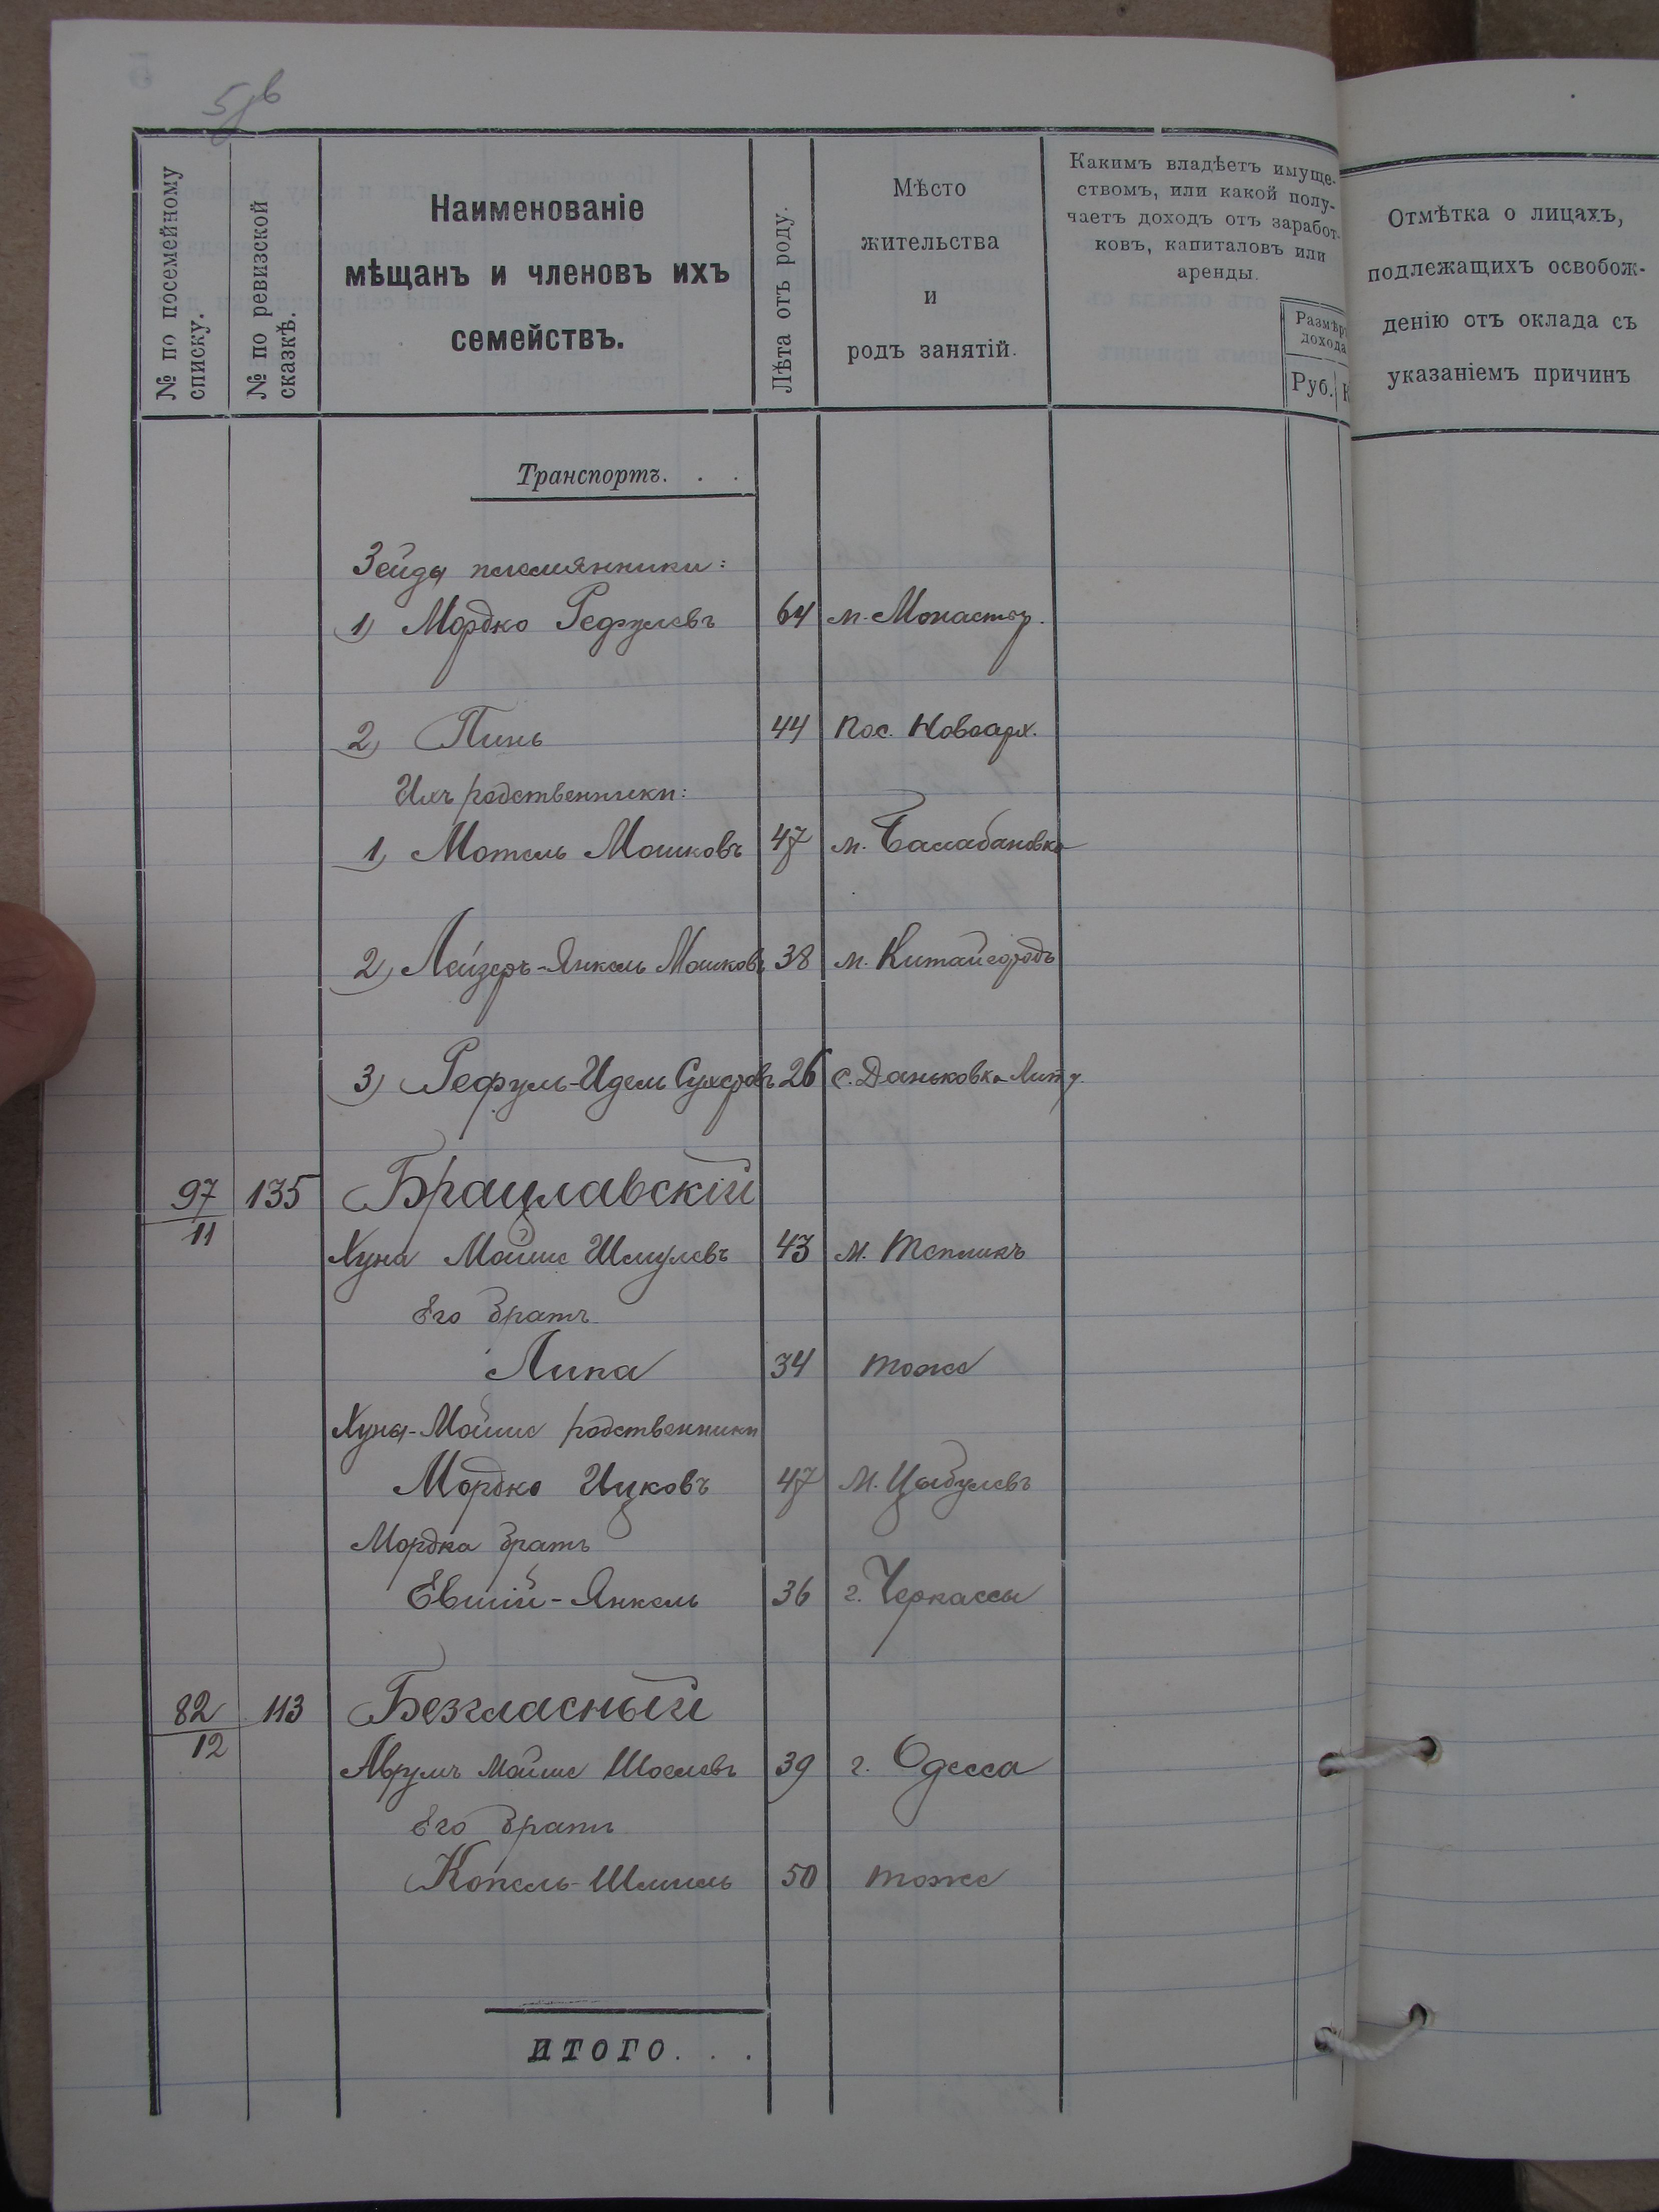 5 об
№ по посемейному списку.
№ по ревизской сказкѣ.
Наименованіе
мѣщанъ и членовъ ихъ
семействъ.
Лѣта отъ роду.
Мѣсто
жительства
и
родъ занятій.
Какимъ владѣетъ имуще-
ствомъ, или какой полу-
чаетъ доходъ отъ заработ-
ковъ, капиталовъ или
аренды.
Размѣръ
дохода
Руб. К
Отмѣтка о лицахъ,
подлежащихъ освобож-
денію отъ оклада съ
указаніемъ причинъ
Транспортъ. . .
Зейды племянники:
1) Мордко Рефулевъ 64 м. Монастыр.
2) Пинь 44 Пос. Новоарх.
Ихъ родственники:
1) Мотель Мошковъ 47 м. Балабановка
2) Лейзеръ-Янкель Мошковъ 38 м. Китайгородъ
3) Рефуль-Идель Сухеровъ 26 с. Даньковка
97 135 Брацлавскій
11
Хуна Мойше Шмулевъ 43 м. Тепликъ
Его братъ
Липа 34 тоже
Хуны-Мойше родственники
Мордко Ицковъ 47 м. Цыбулевъ
Мордка братъ
Евшій-Янкель 36 г. Черкассы
82 113 Безгласный
12
Аврумъ Мойше Шоелевъ 39 г. Одесса
Его братъ
Копель-Шмиль 50 тоже
ИТОГО. . .